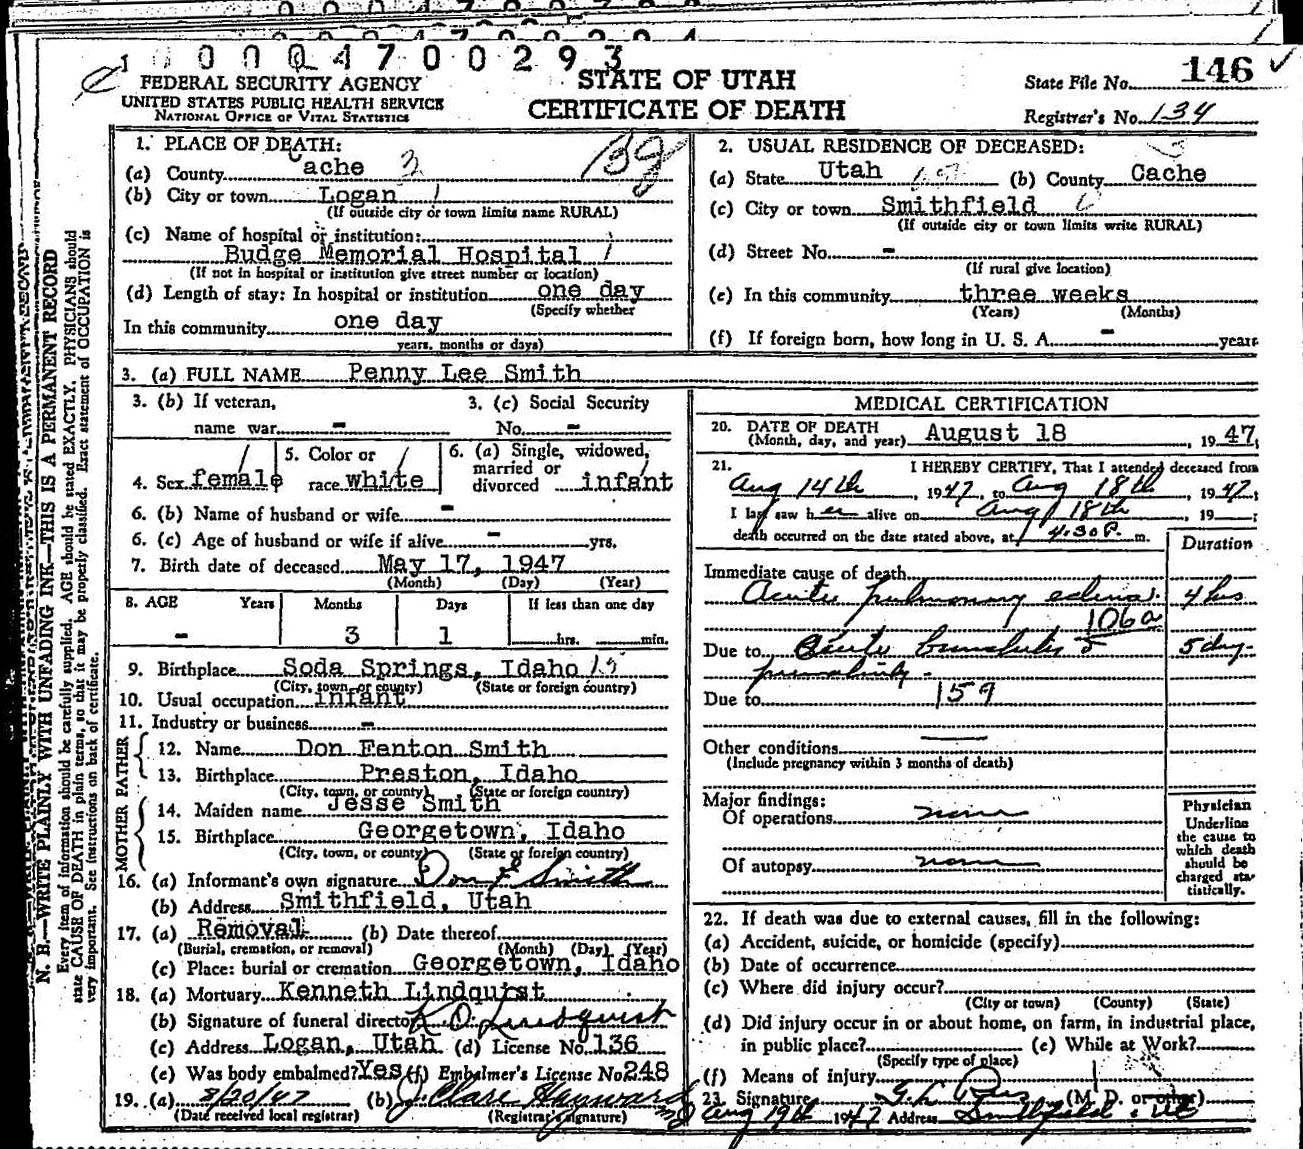 0004700293
FEDERAL SECURITY AGENCY
UNITED STATES PUBLIC HEALTH SERVICE
NATIONAL OFFICE OF VITAL STATISTICS
STATE OF UTAH
CERTIFICATE OF DEATH
State File No. 146
Registrar's No. 134
N. B.—WRITE PLAINLY WITH UNFADING INK—THIS IS A PERMANENT RECORD
Every item of information should be carefully supplied. AGE should be stated EXACTLY. PHYSICIANS should
state CAUSE OF DEATH in plain terms, so that it may be properly classified. Exact statement of OCCUPATION is
very important. See instructions on back of certificate.
1. PLACE OF DEATH:
(a) County Cache
(b) City or town Logan
(If outside city or town limits name RURAL)
(c) Name of hospital or institution:
Budge Memorial Hospital
(If not in hospital or institution give street number or location)
(d) Length of stay: In hospital or institution one day
(Specify whether
In this community one day
years, months or days)
2. USUAL RESIDENCE OF DECEASED:
(a) State Utah (b) County Cache
(c) City or town Smithfield
(If outside city or town limits write RURAL)
(d) Street No. -
(If rural give location)
(e) In this community three weeks
(Years) (Months)
(f) If foreign born, how long in U. S. A. - years
3. (a) FULL NAME Penny Lee Smith
3. (b) If veteran, 3. (c) Social Security
name war - No. -
4. Sex female 5. Color or race white 6. (a) Single, widowed, married or divorced infant
6. (b) Name of husband or wife -
6. (c) Age of husband or wife if alive - yrs.
7. Birth date of deceased May 17, 1947
(Month) (Day) (Year)
8. AGE Years Months Days If less than one day
- 3 1 hrs. min.
9. Birthplace Soda Springs, Idaho
(City, town or county) (State or foreign country)
10. Usual occupation infant
11. Industry or business -
FATHER
12. Name Don Fenton Smith
13. Birthplace Preston, Idaho
(City, town, or county) (State or foreign country)
MOTHER
14. Maiden name Jesse Smith
15. Birthplace Georgetown, Idaho
(City, town, or county) (State or foreign country)
16. (a) Informant's own signature Don F Smith
(b) Address Smithfield, Utah
17. (a) Removal (b) Date thereof
(Burial, cremation, or removal) (Month) (Day) (Year)
(c) Place: burial or cremation Georgetown, Idaho
18. (a) Mortuary Kenneth Lindquist
(b) Signature of funeral director K O Lindquist
(c) Address Logan, Utah (d) License No. 136
(e) Was body embalmed? Yes (f) Embalmer's License No. 248
19. (a) 8/20/47 (b) J. Clare Hayward
(Date received local registrar) (Registrar's signature)
MEDICAL CERTIFICATION
20. DATE OF DEATH
(Month, day, and year) August 18, 1947
21. I HEREBY CERTIFY, That I attended deceased from
Aug 14th, 1947, to Aug 18th, 1947;
I last saw her alive on Aug 18th, 19 ;
death occurred on the date stated above, at 4:30 P. m.
Duration
Immediate cause of death
Acute pulmonary edema. 4 hrs
106a
Due to Acute 5 day-
Due to 159
Other conditions
(Include pregnancy within 3 months of death)
Major findings:
Of operations none
Of autopsy none
Physician
Underline
the cause to
which death
should be
charged sta-
tistically.
22. If death was due to external causes, fill in the following:
(a) Accident, suicide, or homicide (specify)
(b) Date of occurrence
(c) Where did injury occur?
(City or town) (County) (State)
(d) Did injury occur in or about home, on farm, in industrial place,
in public place? (e) While at Work?
(Specify type of place)
(f) Means of injury
23. Signature (M. D. or other)
Aug 19th 1947 Address Smithfield, Ut